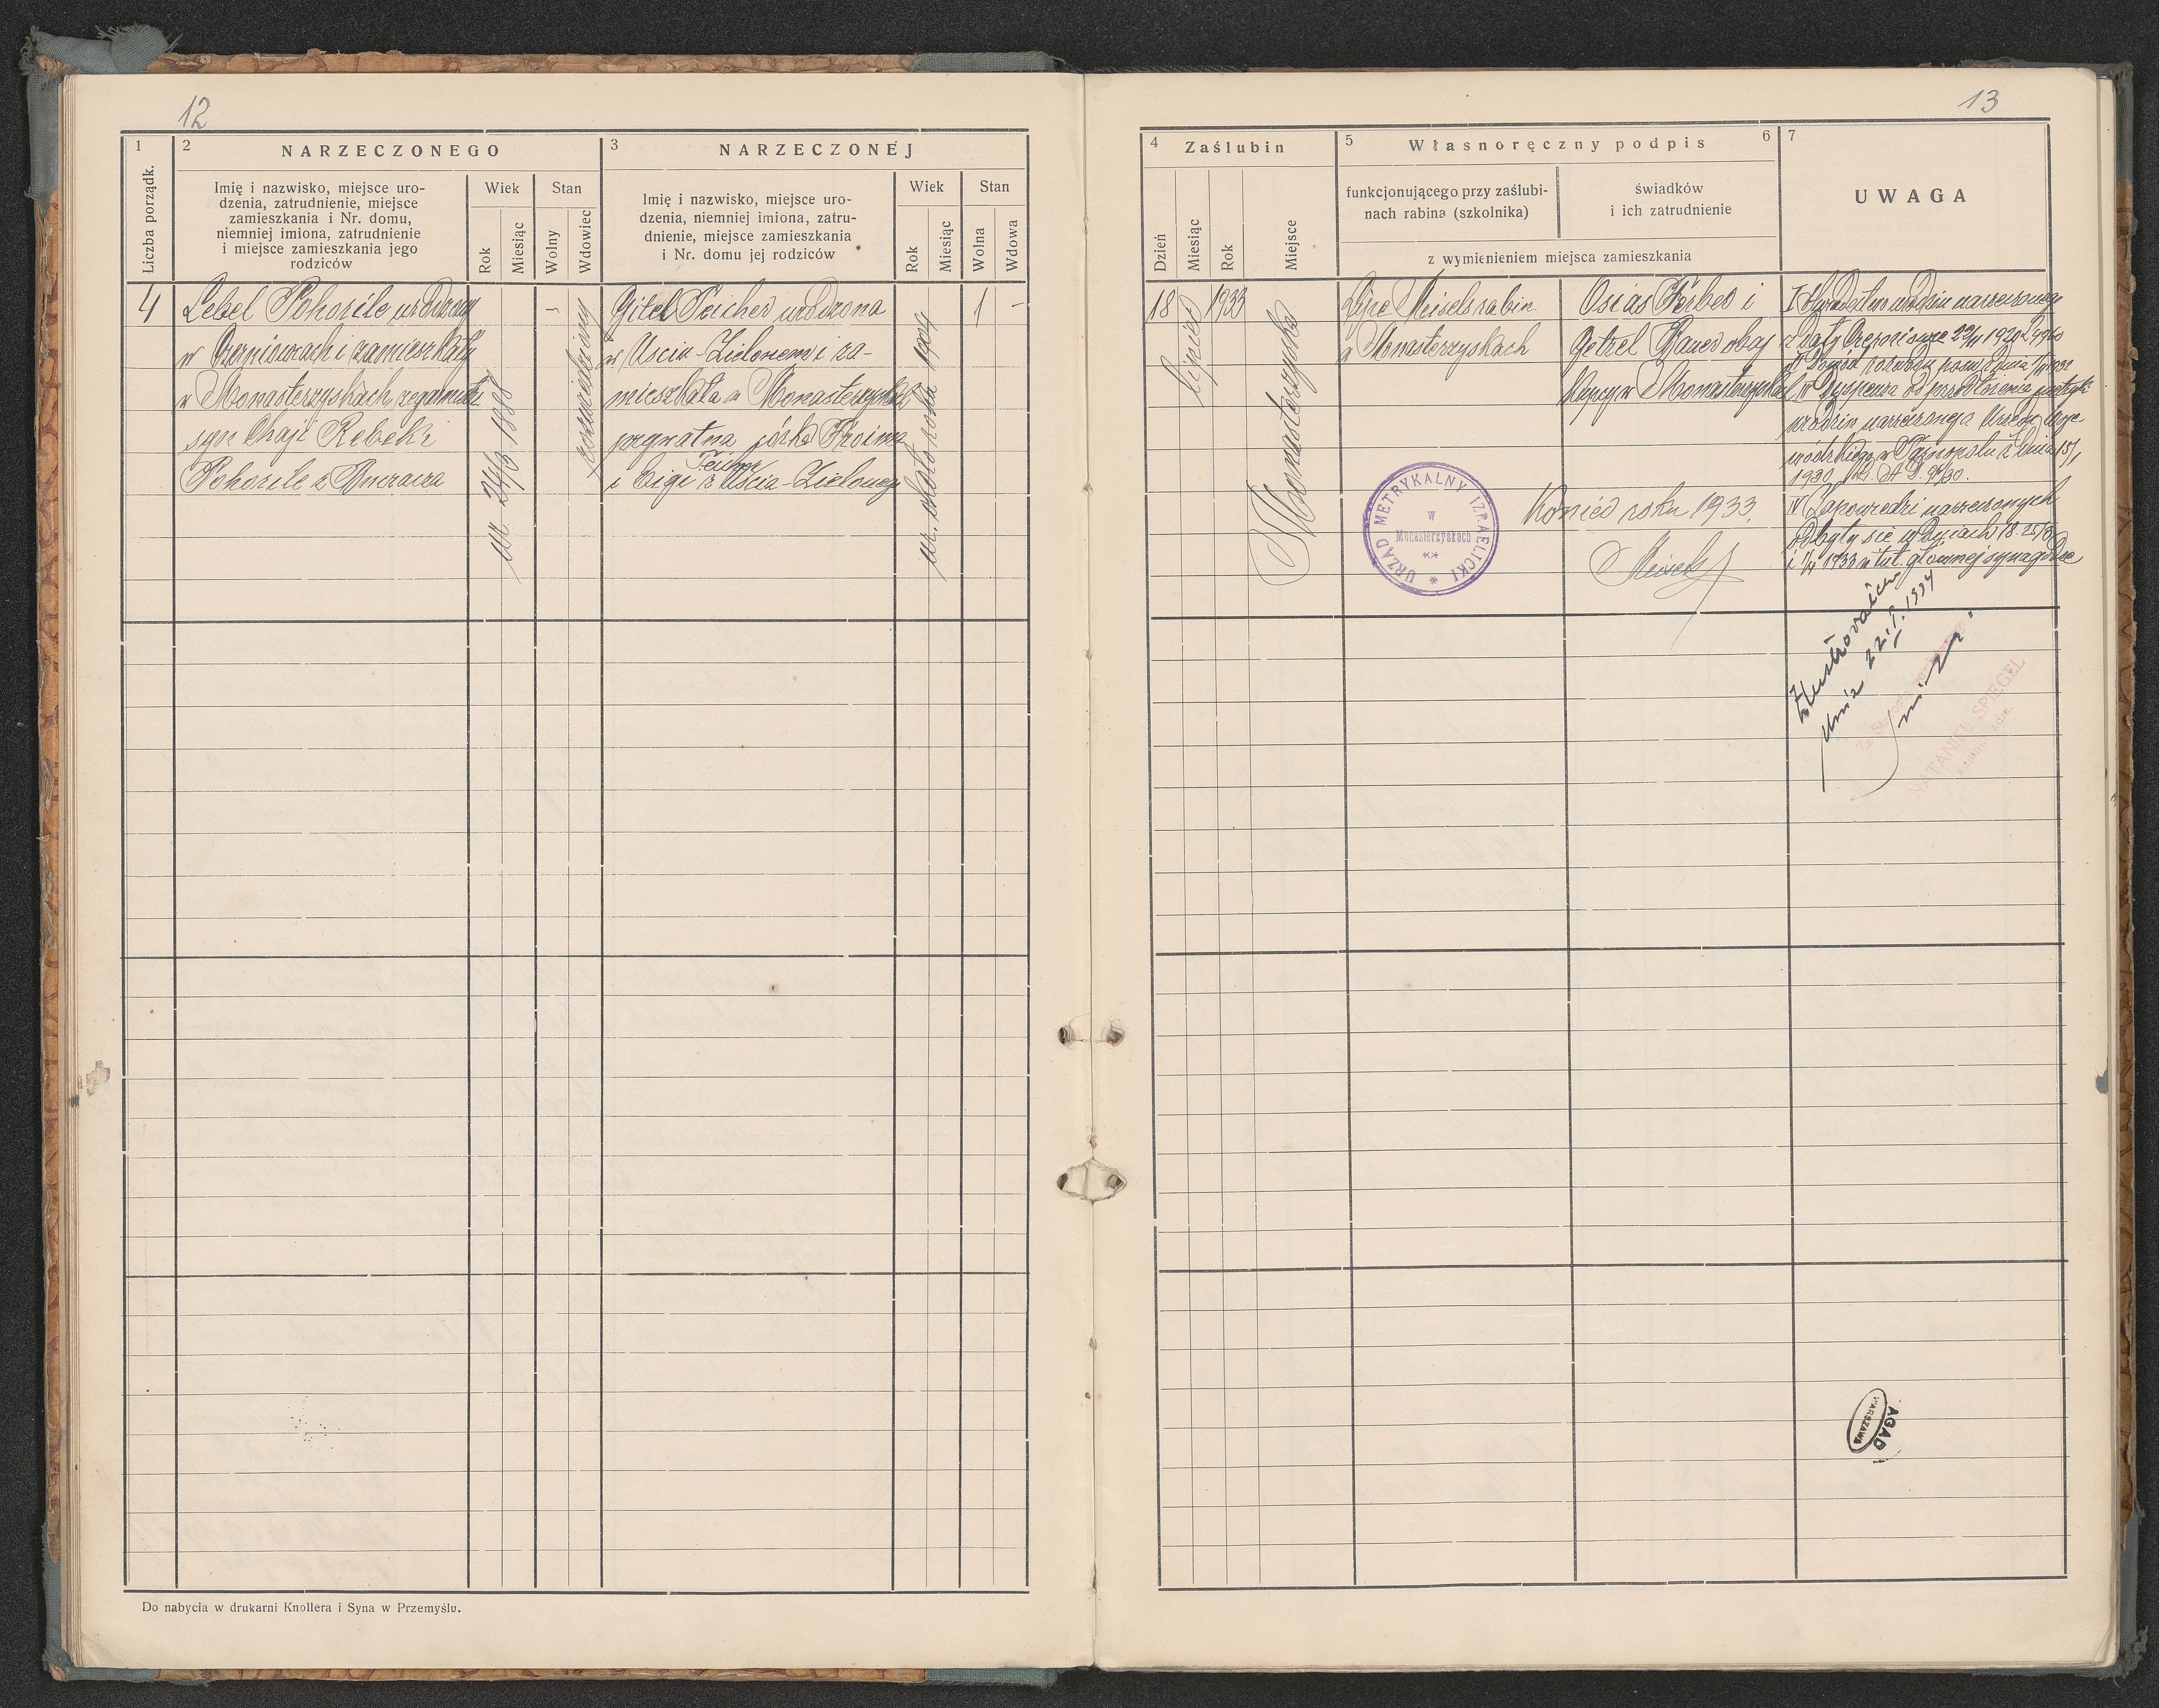 12
1
Liczba porządk.
2 NARZECZONEGO
Imię i nazwisko, miejsce uro-
dzenia, zatrudnienie, miejsce
zamieszkania i Nr. domu,
niemniej imiona, zatrudnienie
i miejsce zamieszkania jego
rodziców
Wiek
Rok
Miesiąc
Stan
Wolny
Wdowiec
3 NARZECZONEJ
Imię i nazwisko, miejsce uro-
dzenia, niemniej imiona, zatru-
dnienie, miejsce zamieszkania
i Nr. domu jej rodziców
Wiek
Rok
Miesiąc
Stan
Wolna
Wdowa
4
Lebel Pohorile urodzony
w Czerniowcach i zamieszkały
w Monasterzyskach zegarmistrz
syn Chaji Rebeki
Pohorile z Buczacza
ur 24/3 1888
rozwiedziony
Gitel Teicher urodzona
w Uściu-Zielonem i za-
mieszkała w Monasterzyskach
prywatna córka Froima
Teicher
i Cigi z Uścia-Zielonego
ur. około roku 1904
1 -
Do nabycia w drukarni Knollera i Syna w Przemyślu.
13
4 Zaślubin
Dzień
Miesiąc
Rok
Miejsce
5 Własnoręczny podpis 6
funkcjonującego przy zaślubi-
nach rabina (szkolnika)
świadków
i ich zatrudnienie
z wymienieniem miejsca zamieszkania
7
UWAGA
18
lipiec
1933
Monasterzyska
Meisels rabin
w Monasterzyskach
Osias Ferber i
Getzel Bauer obaj
kupcy w Monasterzyskach
I Świadectwo urodzin narzeczonego
z daty 1920
II Dowód rozwodu
III Dyspensa od przedłożenia metryki
urodzin narzeczonego Urzędu Woje-
wódzkiego w Tarnopolu z dnia 15/1
1930
IV Zapowiedzi narzeczonych
odbyły się w dniach 18. 25/3
i 1/4 1933 w tut. głównej synagodze
URZĄD METRYKALNY IZRAELICKI
w
Monasterzyskach
Koniec roku 1933
Meisels
Zlustrowałem
dnia 22.I.1934
Za Starostę
NATANEL SPIEGEL
adm.
AGAD
WARSZAWA